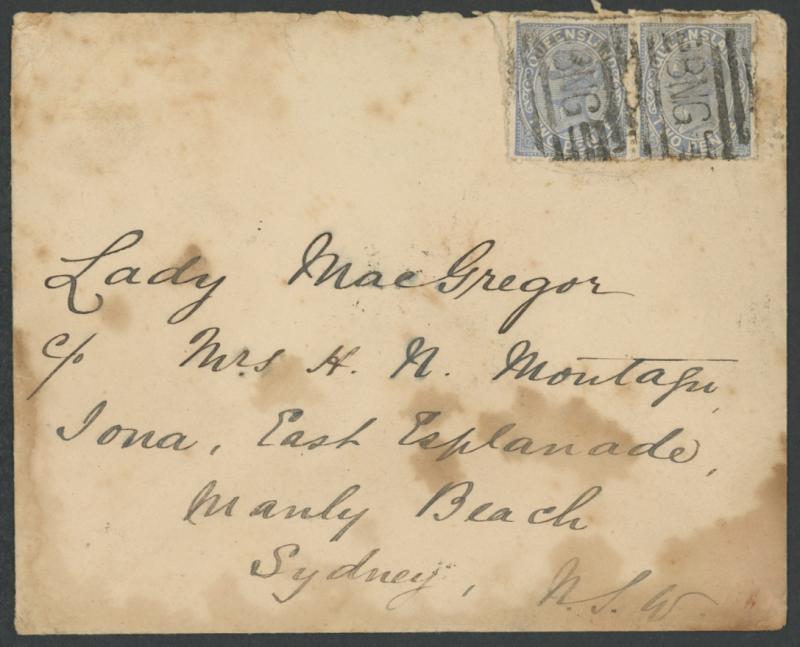 QUEENSLAND QUEENSLAND
BNG BNG
TWO PENCE TWO PENCE
Lady MacGregor
c/o Mrs H. N. Montagu,
Iona, East Esplanade,
Manly Beach
Sydney, N.S.W.